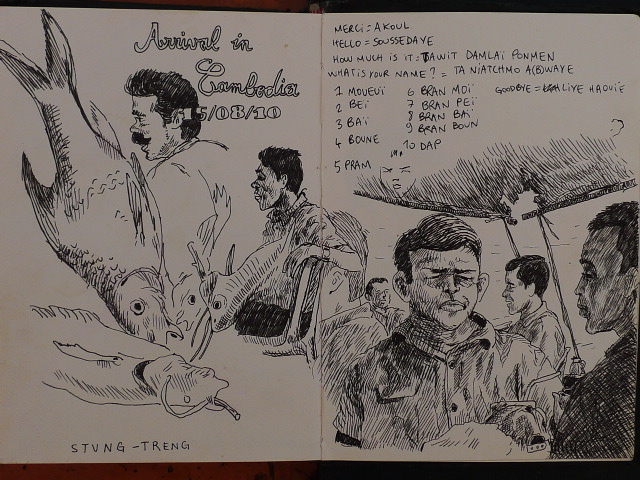 Arrival in
Cambodia
15/08/10
STUNG-TRENG
MERCI = AKOUL
HELLO = SOUSSEDAYE
HOW MUCH IS IT = TAWIT DAMLAÏ PONMEN
WHAT IS YOUR NAME? = TA NIATCHMO A(B)WAYE
1 MOUEUÏ 6 BRAN MOÏ GOODBYE = LIYE HAOUIE
2 BEÏ 7 BRAN PEÏ
3 BAÏ 8 BRAN BAÏ
4 BOUNE 9 BRAN BOUN
5 PRAM 10 DAP